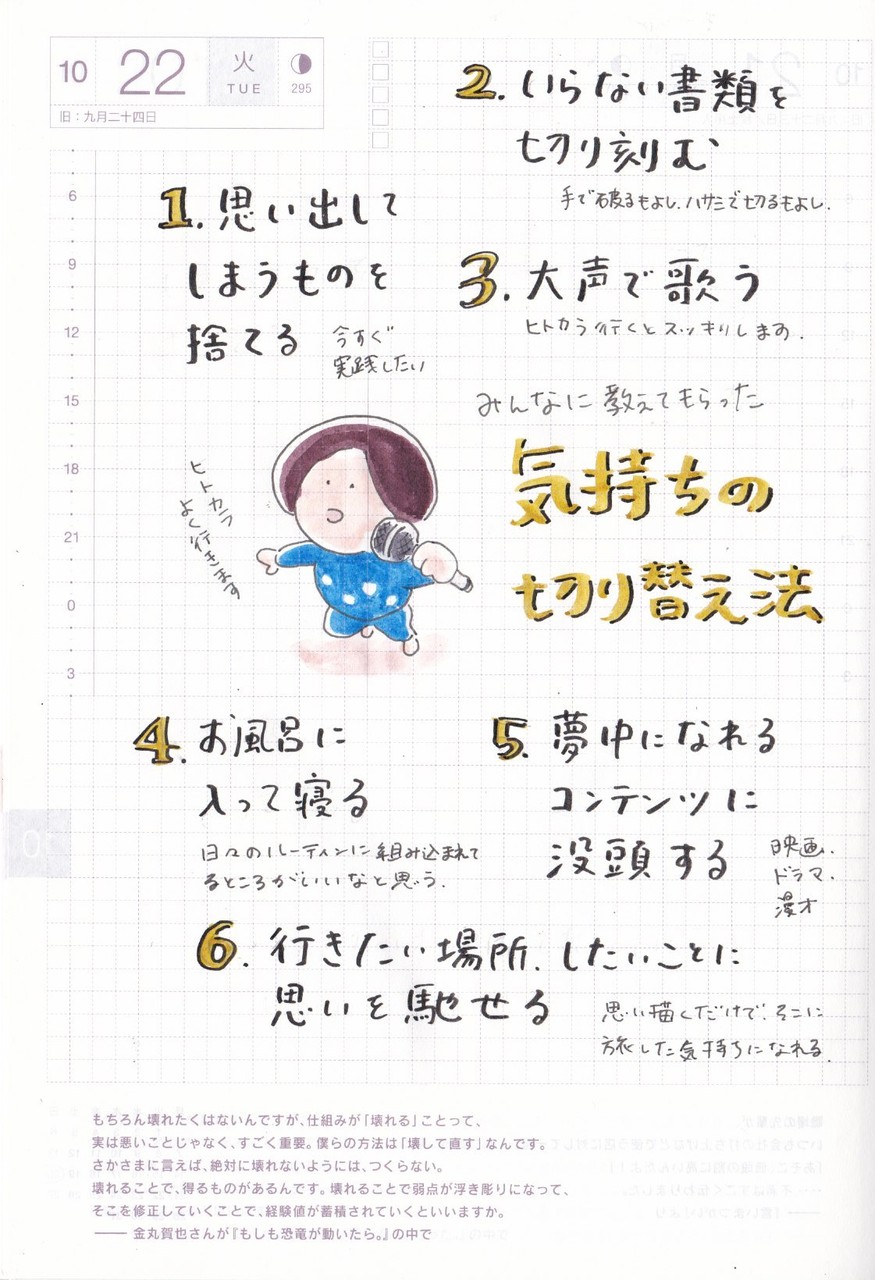 10 22 火 TUE 295
旧：九月二十四日
みんなに教えてもらった
気持ちの
切り替え法
1. 思い出して
しまうものを
捨てる
今すぐ
実践したい
2. いらない書類を
切り刻む
手で破るもよし、ハサミで切るもよし。
3. 大声で歌う
ヒトカラ行くとスッキリします。
ヒトカラ
よく行きます
6
9
12
15
18
21
0
3
4. お風呂に
入って寝る
日々のルーティンに組み込まれて
るところがいいなと思う。
5. 夢中になれる
コンテンツに
没頭する
映画、
ドラマ、
漫才
6. 行きたい場所、したいことに
思いを馳せる
思い描くだけで、そこに
旅した気持ちになれる。
もちろん壊れたくはないんですが、仕組みが「壊れる」ことって、
実は悪いことじゃなく、すごく重要。僕らの方法は「壊して直す」なんです。
さかさまに言えば、絶対に壊れないようには、つくらない。
壊れることで、得るものがあるんです。壊れることで弱点が浮き彫りになって、
そこを修正していくことで、経験値が蓄積されていくといいますか。
―― 金丸賀也さんが『もしも恐竜が動いたら。』の中で